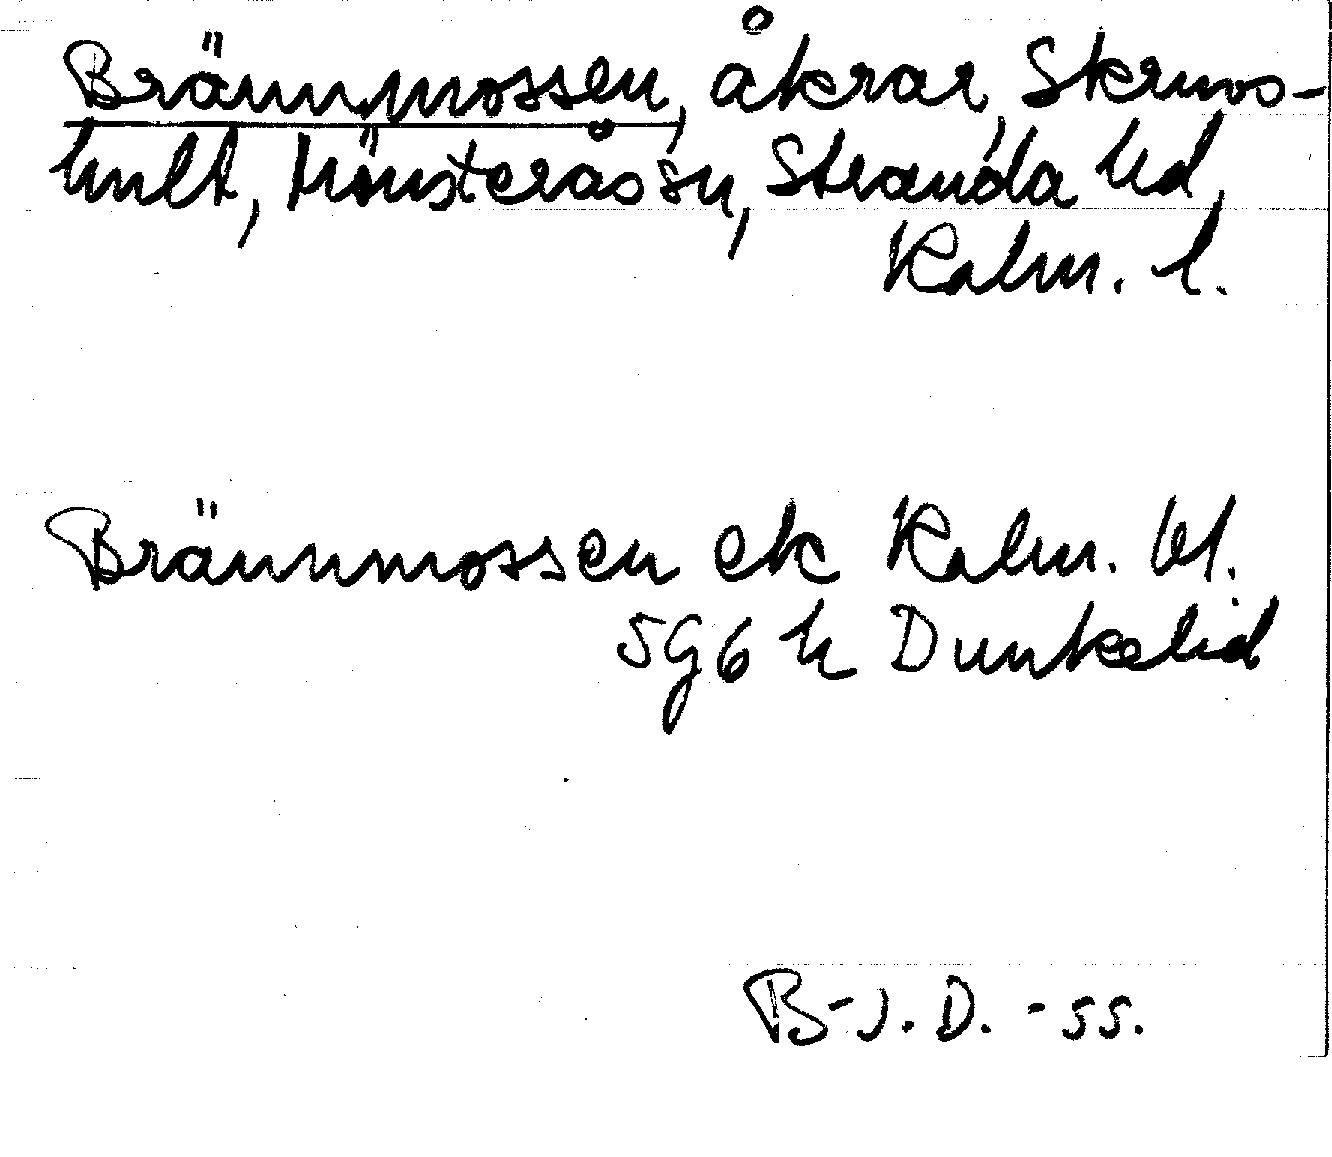 Brännmossen, åkrar, Skruvs-
hult, Mönsterås sn, Stranda hd,
Kalm. l.
Brännmossen ek Kalm. bl.
5g6 h Dunkelid
B-J. D. -55.